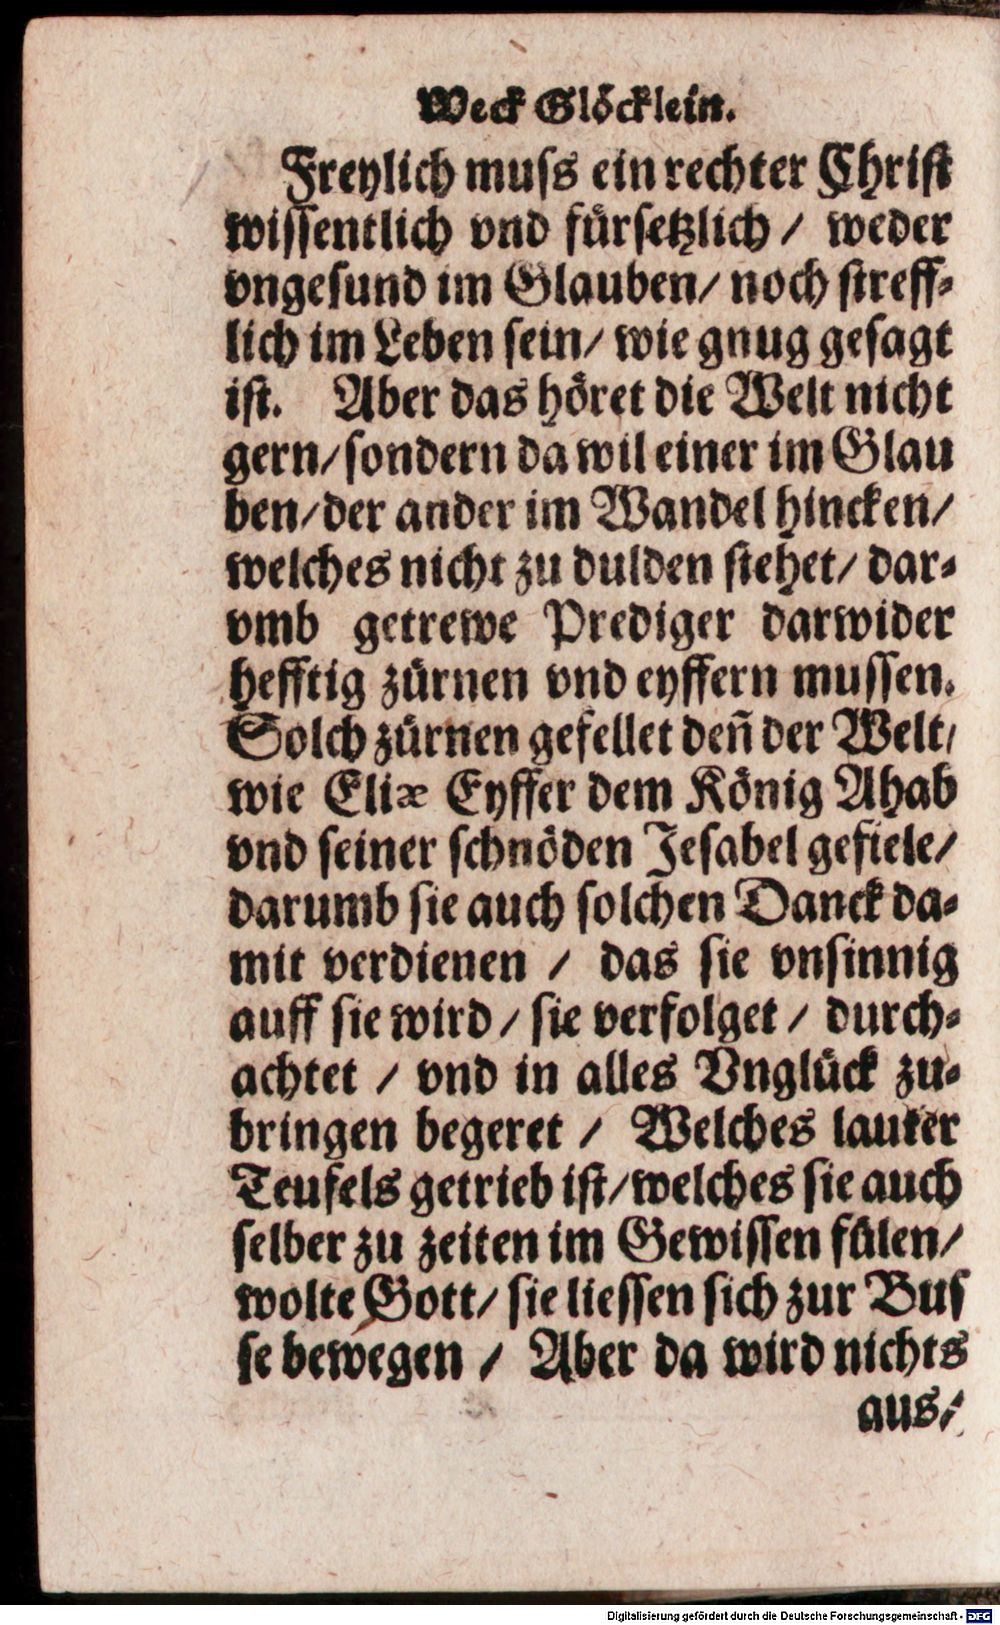 Weck Glöcklein.
Freylich muss ein rechter Christ
wissentlich vnd fürsetzlich / weder
vngesund im Glauben / noch streff-
lich im Leben sein / wie gnug gesagt
ist. Aber das höret die Welt nicht
gern / sondern da wil einer im Glau
ben / der ander im Wandel hincken /
welches nicht zu dulden stehet / dar-
vmb getrewe Prediger darwider
hefftig zürnen vnd eyffern mussen.
Solch zürnen gefellet deñ der Welt /
wie Eliæ Eyffer dem König Ahab
vnd seiner schnöden Jesabel gefiele /
darumb sie auch solchen Danck da-
mit verdienen / das sie vnsinnig
auff sie wird / sie verfolget / durch-
achtet / vnd in alles Vnglück zu-
bringen begeret / Welches lauter
Teufels getrieb ist / welches sie auch
selber zu zeiten im Gewissen fülen /
wolte Gott / sie liessen sich zur Bus
se bewegen / Aber da wird nichts
aus /
Digitalisierung gefördert durch die Deutsche Forschungsgemeinschaft - DFG